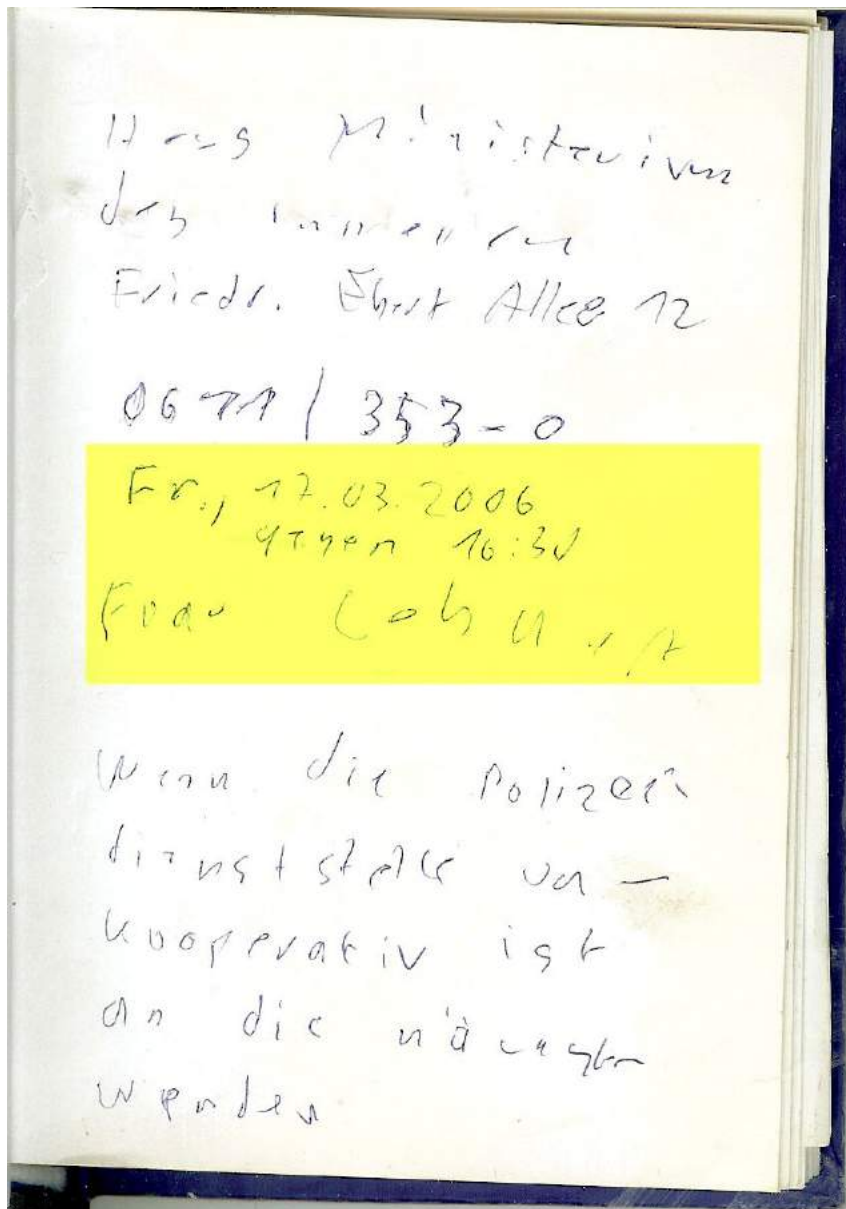 Hess Ministerium
des Inneren
Friedr. Ebert Allee 12
0611 / 353-0
Fr., 17.03.2006
gegen 16:30
Frau
Wenn die Polizei
dienststelle un-
kooperativ ist
an die nächste
wenden